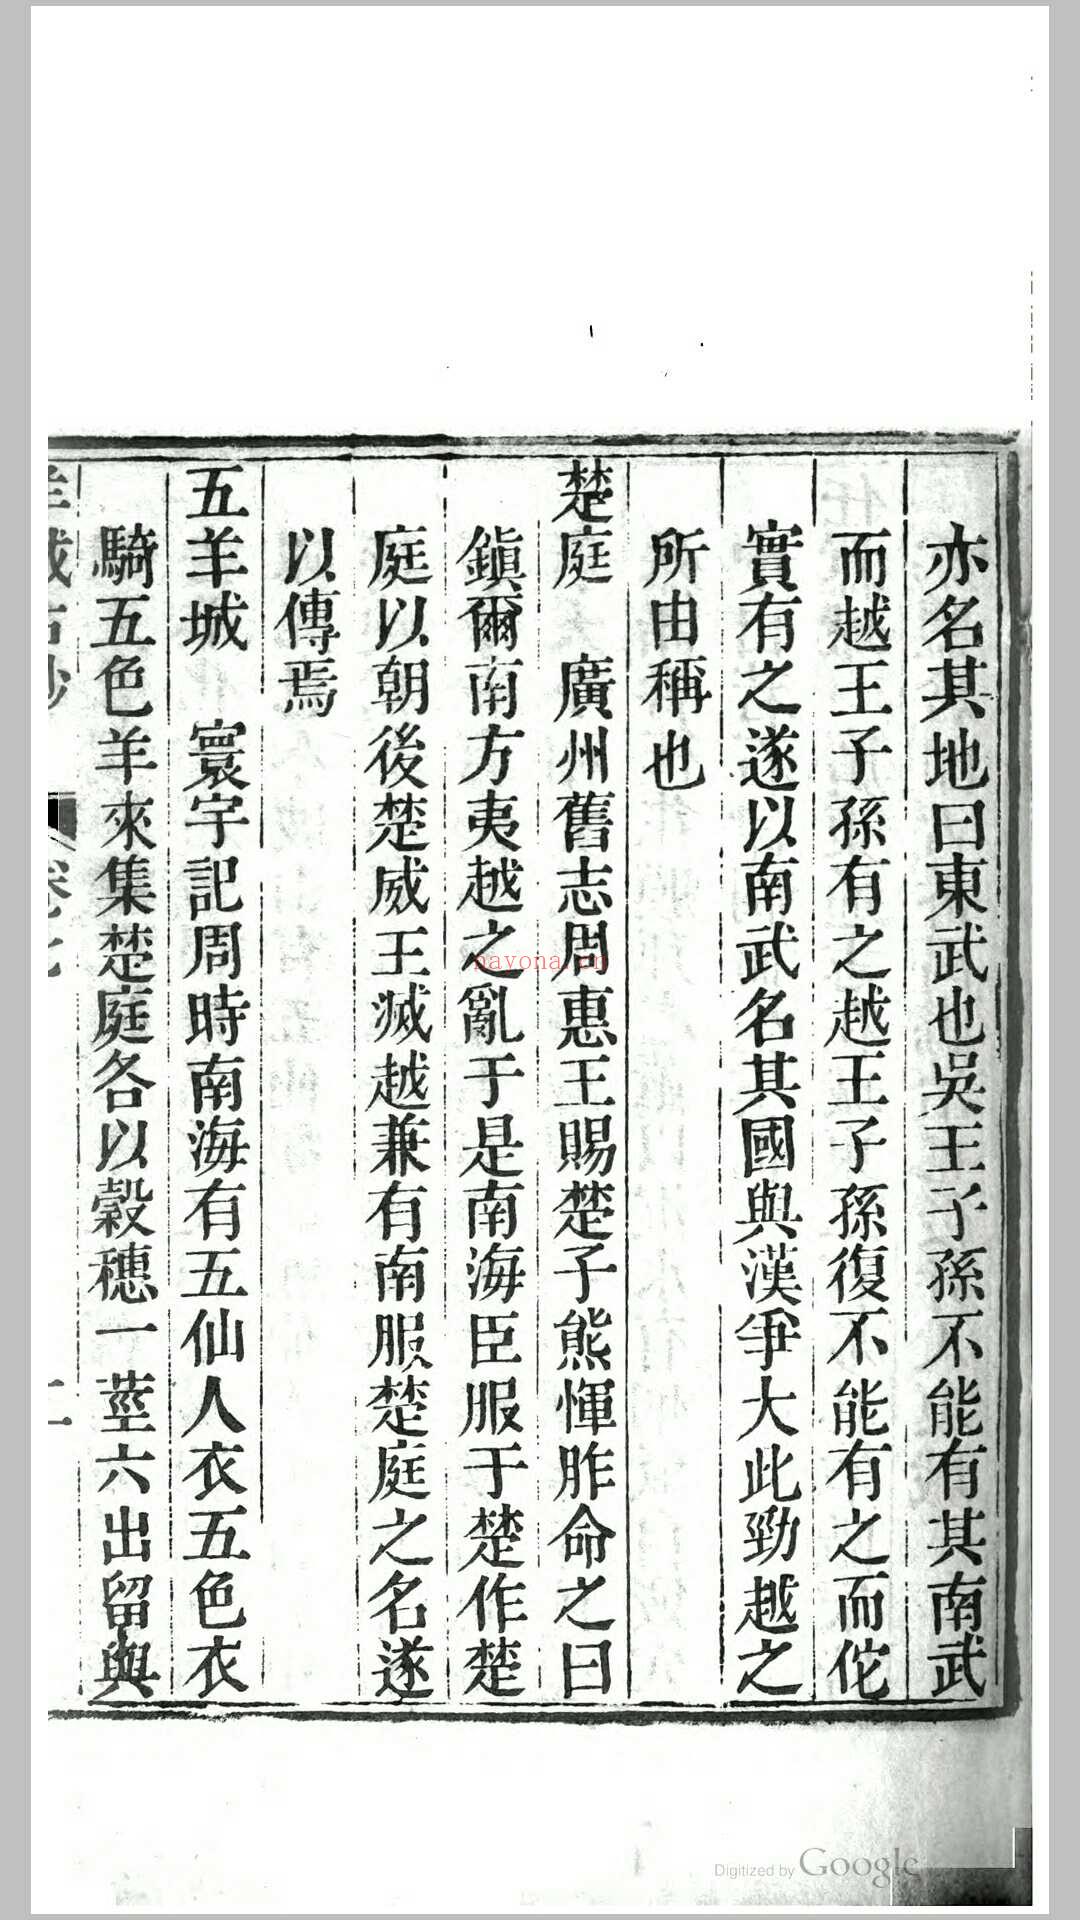 亦名其地曰東武也吳王子孫不能有其南武
而越王子孫有之越王子孫復不能有之而佗
實有之遂以南武名其國與漢爭大此勁越之
所由稱也
楚庭　廣州舊志周惠王賜楚子熊惲胙命之曰
鎭爾南方夷越之亂于是南海臣服于楚作楚
庭以朝後楚威王滅越兼有南服楚庭之名遂
以傳焉
五羊城　寰宇記周時南海有五仙人衣五色衣
騎五色羊來集楚庭各以穀穗一莖六出留與
nayona.cn
Digitized by Google